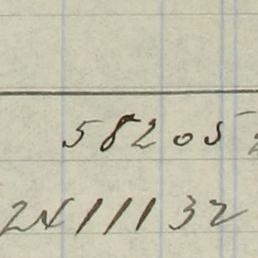 58205
2411132